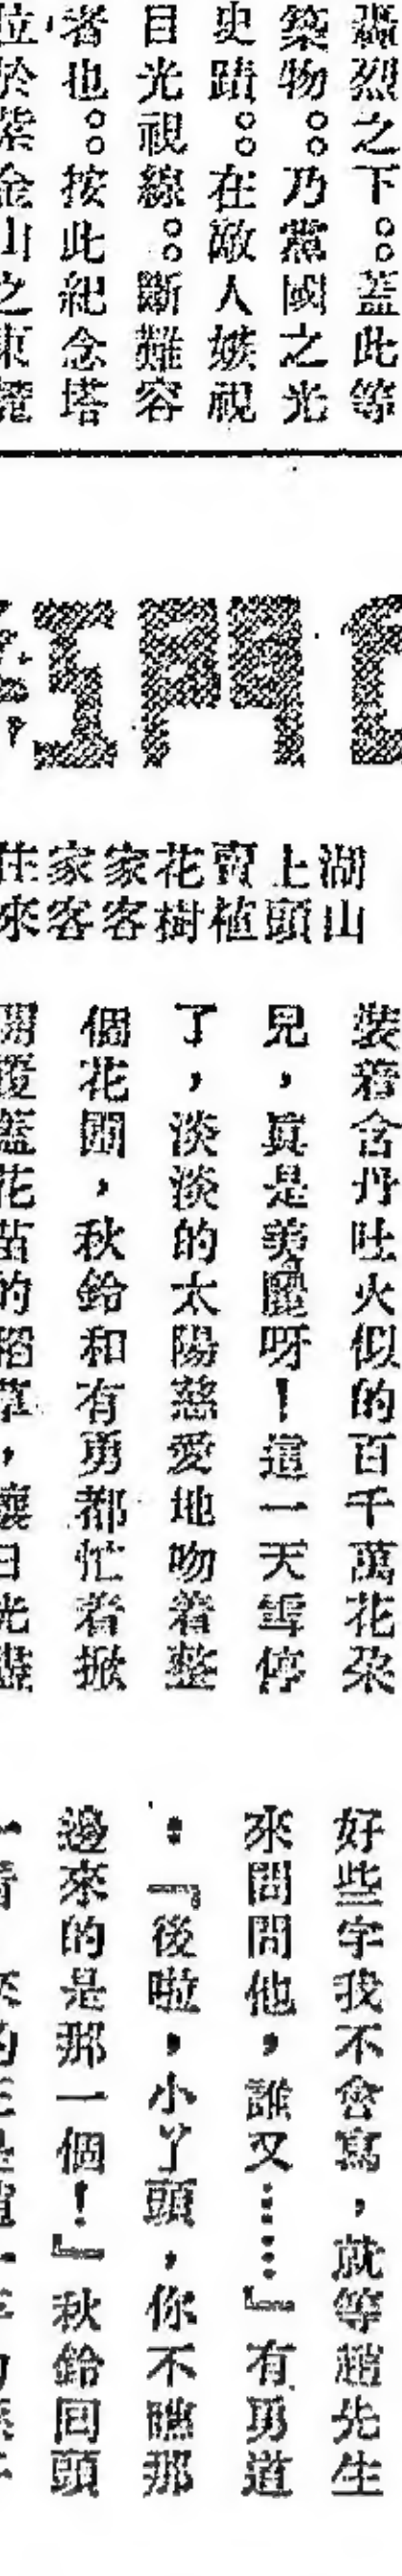 轟烈之下。。蓋此等
築物。。乃黨國之光
史蹟。。在敵人嫉視
目光視線。。斷難容
者也。。按此紀念塔
位於紫金山之東麓
湖山
上頭
賣植
花樹
家客
家客
往來
裝着含丹吐火似的百千萬花朶
見，眞是美麗呀！這一天雪停
了，淡淡的太陽慈愛地吻着整
個花園，秋鈴和有勇都忙着掀
開覆蓋花苗的稻草，讓日光盡
好些字我不會寫，就等趙先生
來問問他，誰又……』有勇道
：『後啦，小丫頭，你不瞧那
邊來的是那一個！』秋鈴回頭